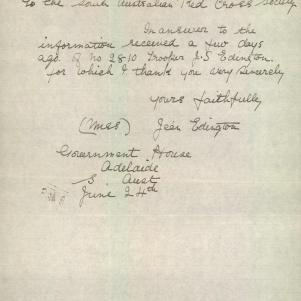 To the South Australian Red Cross Society
In answer to the
information received a few days
ago of no 2810 Trooper J. S Edington.
for which I thank you very sincerely
yours faithfully
(Miss) Jean Edington
Government House
Adelaide
S Aust
June 24th